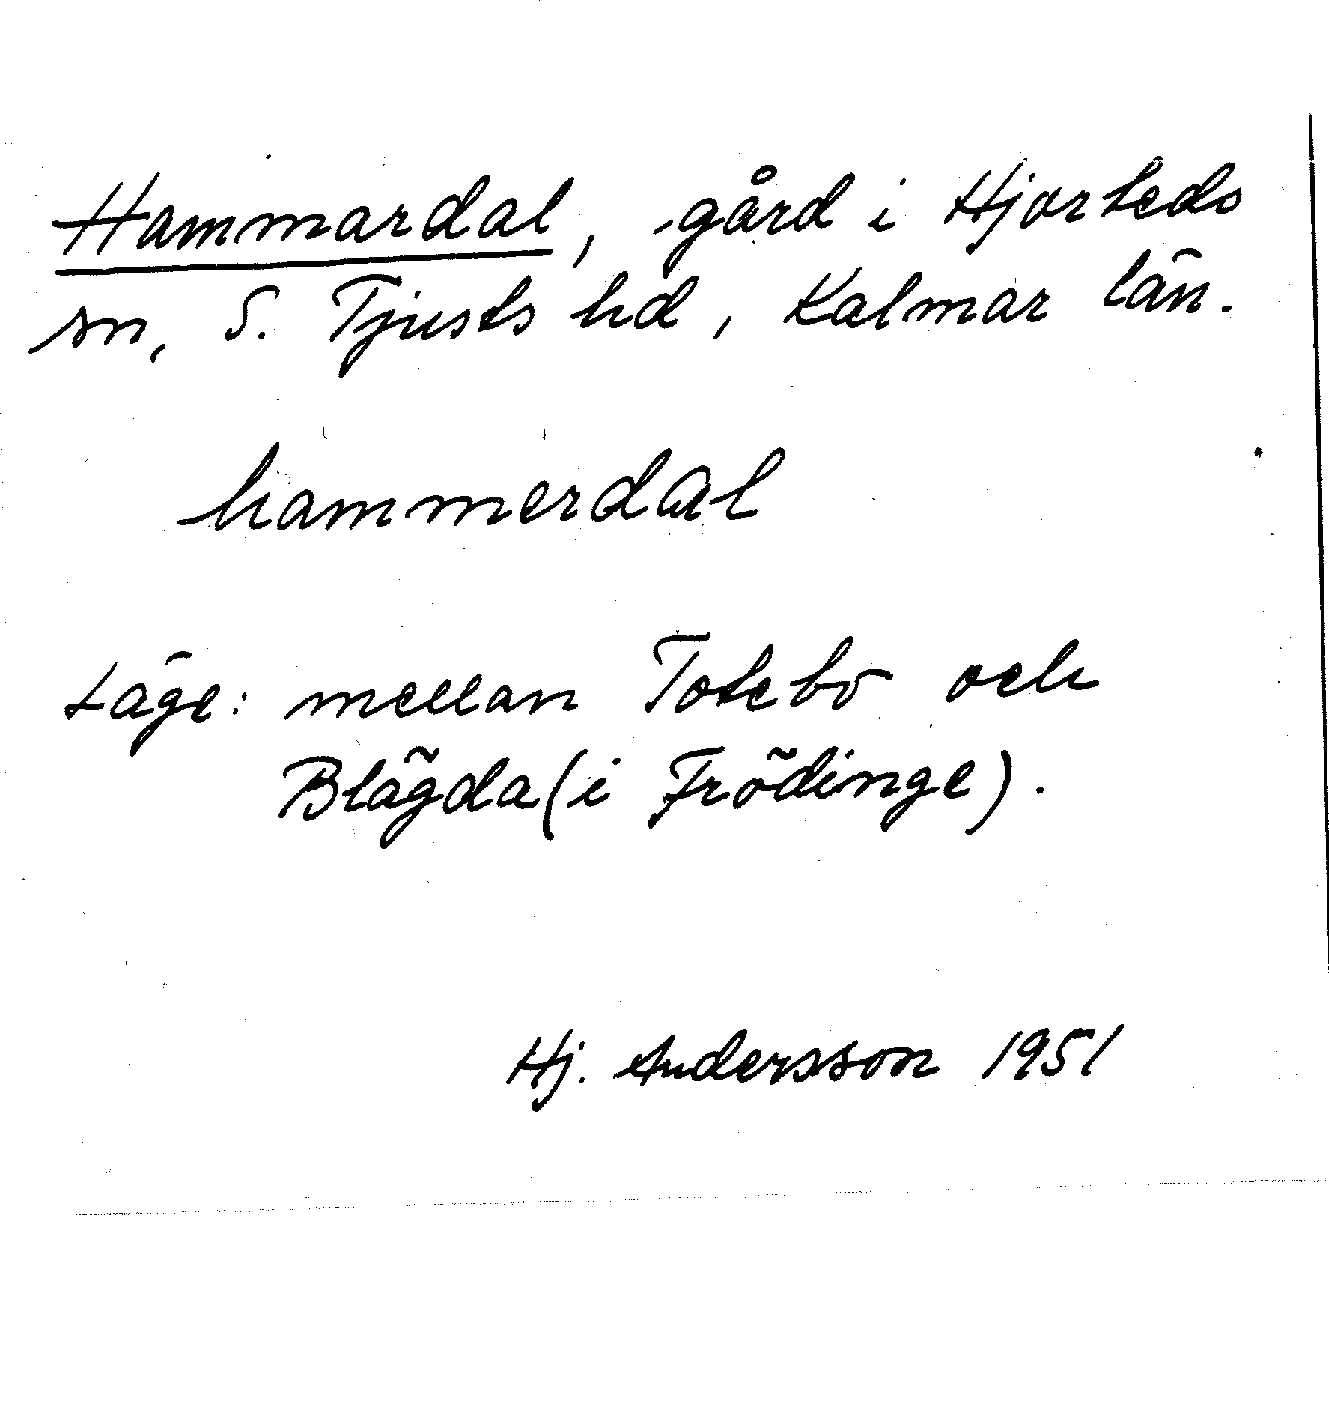 Hammardal, gård i Hjorteds
sn, S. Tjusts hd, Kalmar län.
hammerdal
Läge: mellan Totebo och
Blägda (i Frödinge).
Hj. Andersson 1951